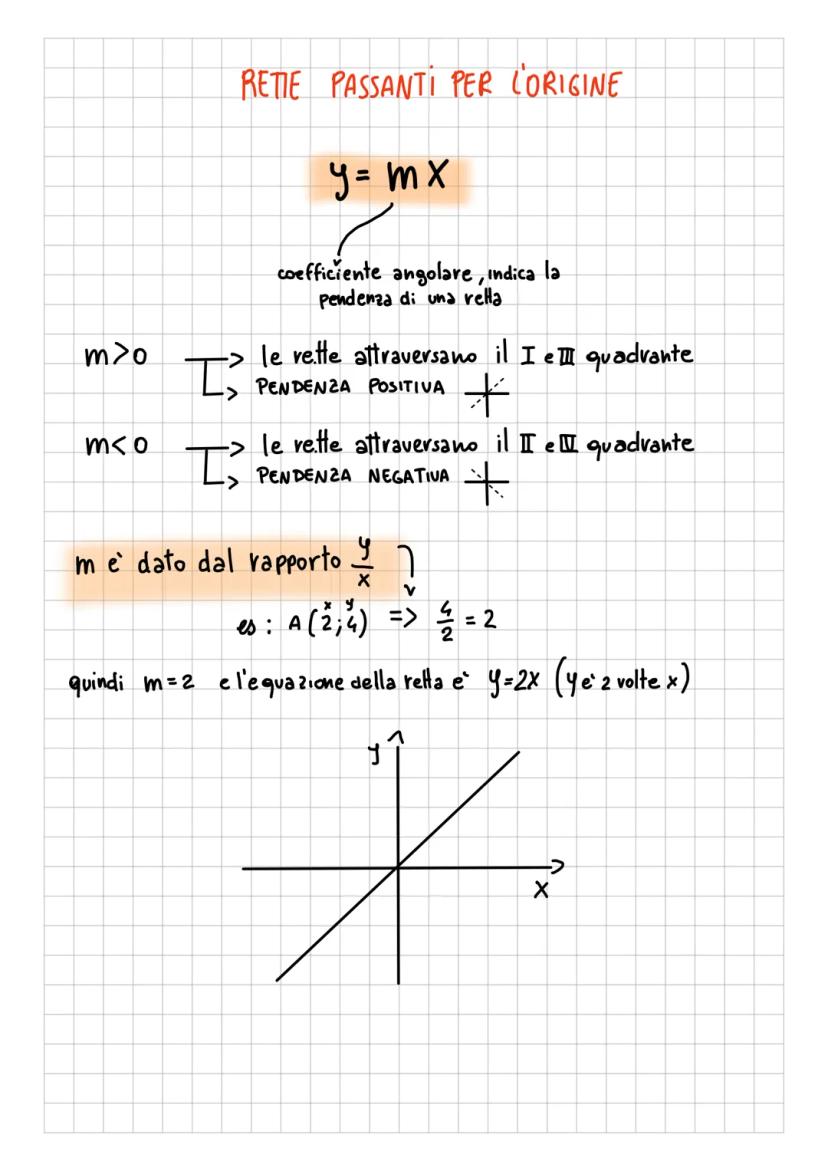 RETTE PASSANTI PER L'ORIGINE
y = mx
coefficiente angolare, indica la
pendenza di una retta
m>0 le rette attraversano il I e III quadrante
PENDENZA POSITIVA
m<0 le rette attraversano il II e IV quadrante
PENDENZA NEGATIVA
m è dato dal rapporto y/x
x y
es: A(2;4) => 4/2 = 2
quindi m=2 e l'equazione della retta è y=2x (y è 2 volte x)
y
x